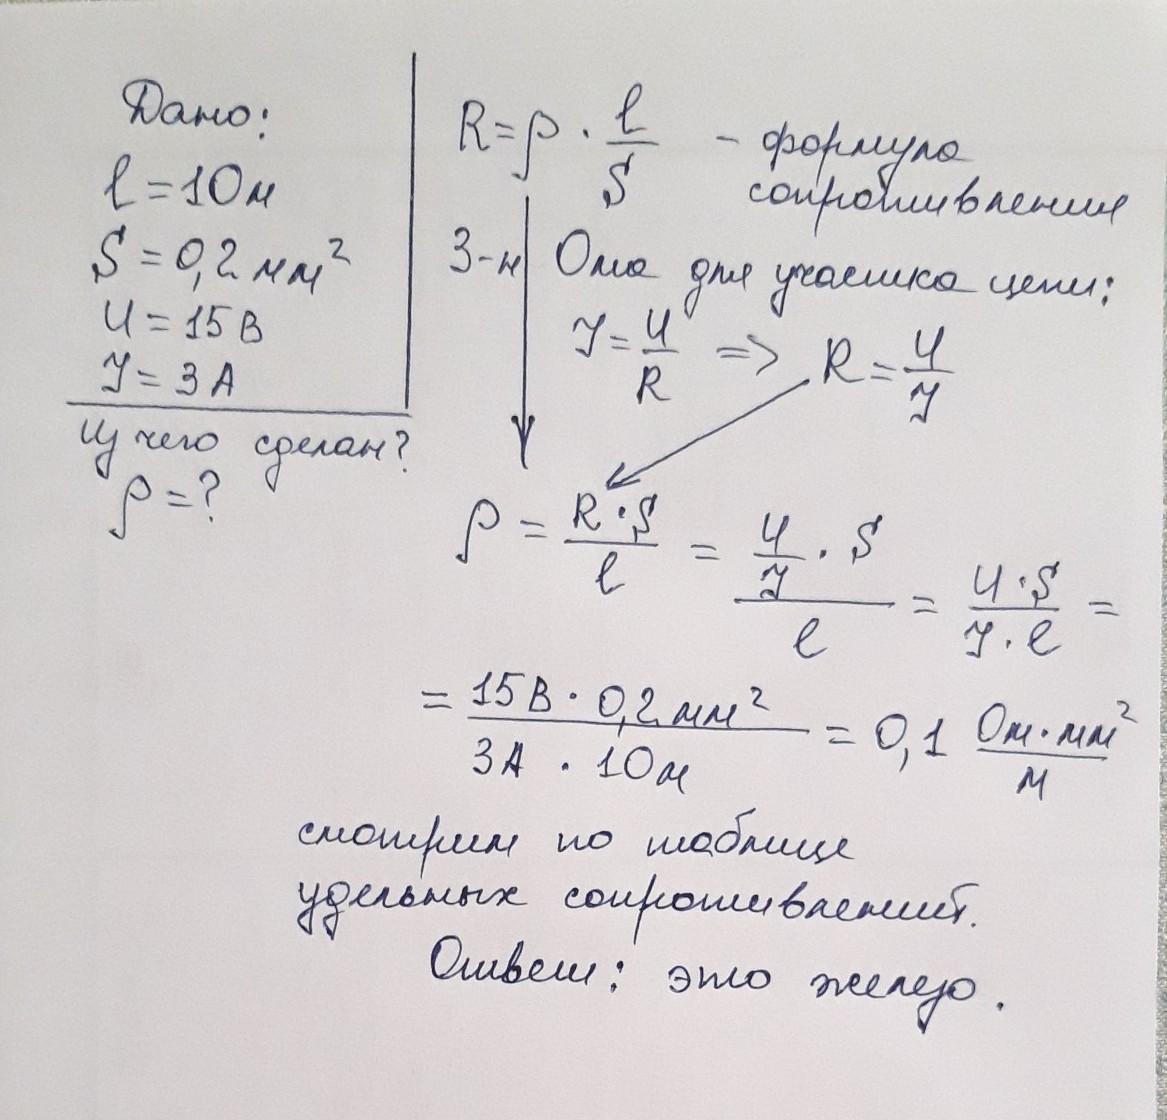 Дано:
l = 10м
S = 0,2 мм²
U = 15 В
I = 3 А
Из чего сделан?
ρ = ?
R = ρ · l/S – формула
сопротивления
З-н Ома для участка цепи:
I = U/R => R = U/I
ρ = (R · S)/l = (U/I · S)/l = (U · S)/(I · l) =
= (15 В · 0,2 мм²)/(3 А · 10 м) = 0,1 (Ом · мм²)/м
смотрим по таблице
удельных сопротивлений.
Ответ: это железо.